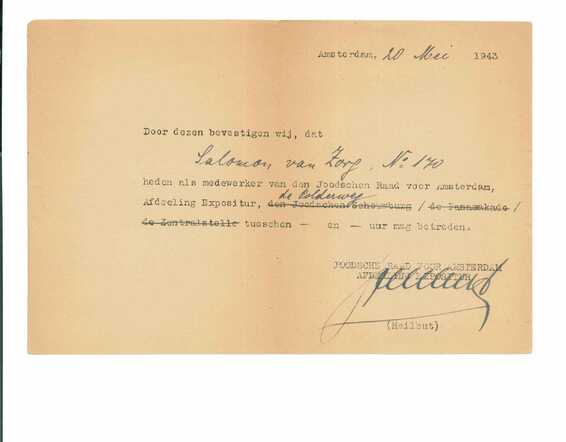 Amsterdam, 20 Mei 1943
Door dezen bevestigen wij, dat
Salomon van Zorg, No 170
heden als medewerker van den Joodschen Raad voor Amsterdam,
de Polderweg
Afdeeling Expositur, den Joodschen Schouwburg / de Panamakade /
de Zentralstelle tusschen — en — uur mag betreden.
JOODSCHE RAAD VOOR AMSTERDAM
AFDEELING EXPOSITUR
(Heilbut)